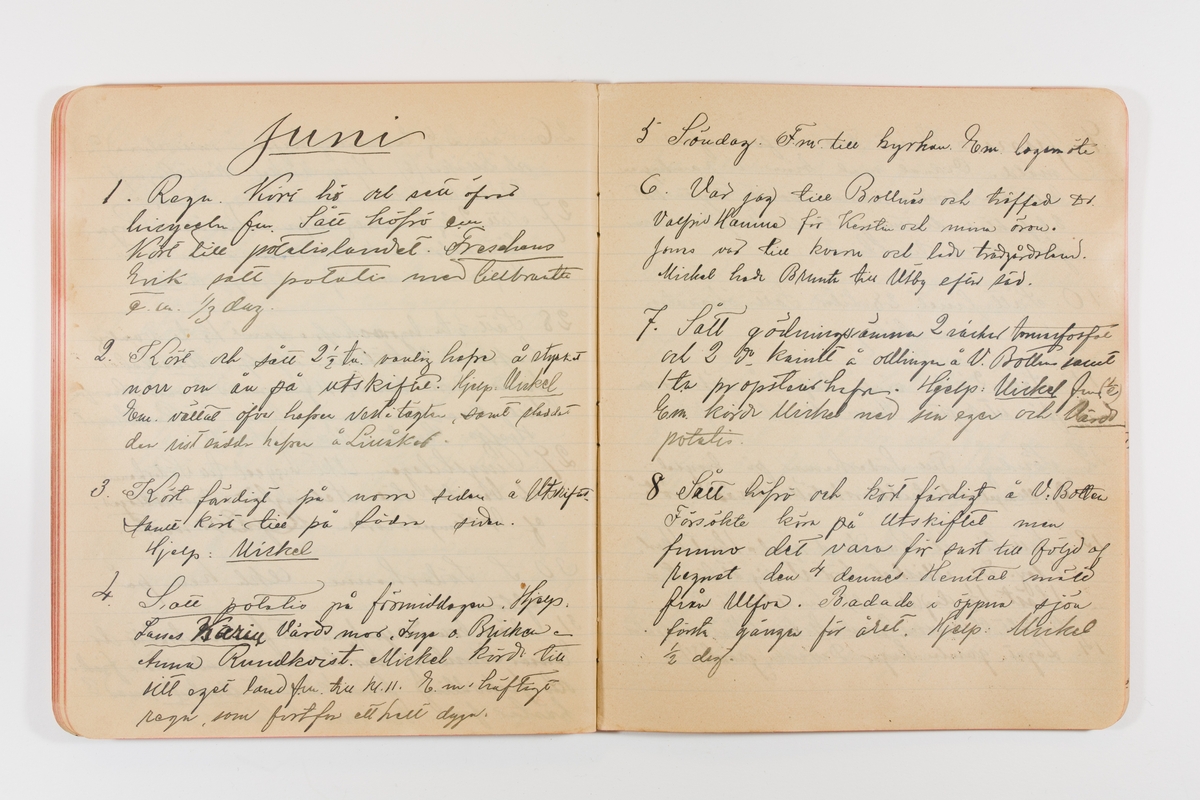 Juni
1. Regn. Kört hö och sått öfver
fm. Sått höfrö em.
Kört till potatislandet. Freschens
Erik satt potatis med
e.m. 1/3 dag.
2. Kört och sått 2 1/2 tr vanlig hafre å stycket
norr om ån på utskiftet. Hjelp: Mickel
Em. vältat öfver hafren samt sladdat
den sist sådde hafren å Lillåker.
3. Kört färdigt på norra sidan å Utskiftet
samt kört till på södra sidan.
Hjelp: Mickel
4. Satt potatis på förmiddagen. Hjelp.
Lasses Karin Vårds mor. Inga o. Bricken
Anna Rundkvist. Mickel körde till
sitt eget land fm. till kl. 11. E.m. häftigt
regn, som fortfor ett helt dygn.
5 Söndag. Fm. till kyrkan. Em. logemöte
6. Var jag till Bollnäs och träffade Dr.
Valfrid Hamne för Kerstin och mina öron.
Jons var till kvarn och lade trädgårdsland.
Mickel hade Brunte till Utby efter säd.
7. Sått gödningsämnen 2 säckar tomasfosfat
och 2 Do kainit å odlingen å V. Botten samt
1 tr propsteierhafre. Hjelp: Mickel fm (1/2)
Em. körde Mickel med sin egen och Vårds
potatis.
8 Sått höfrö och kört färdigt å V. Botten
Försökte köra på Utskiftet men
funno det vara för surt till följd af
regnet den 4 dennes. Hemtat mjöl
från Ulfva. Badade i öppna sjön
första gången för året. Hjelp: Mickel
1/2 dag.